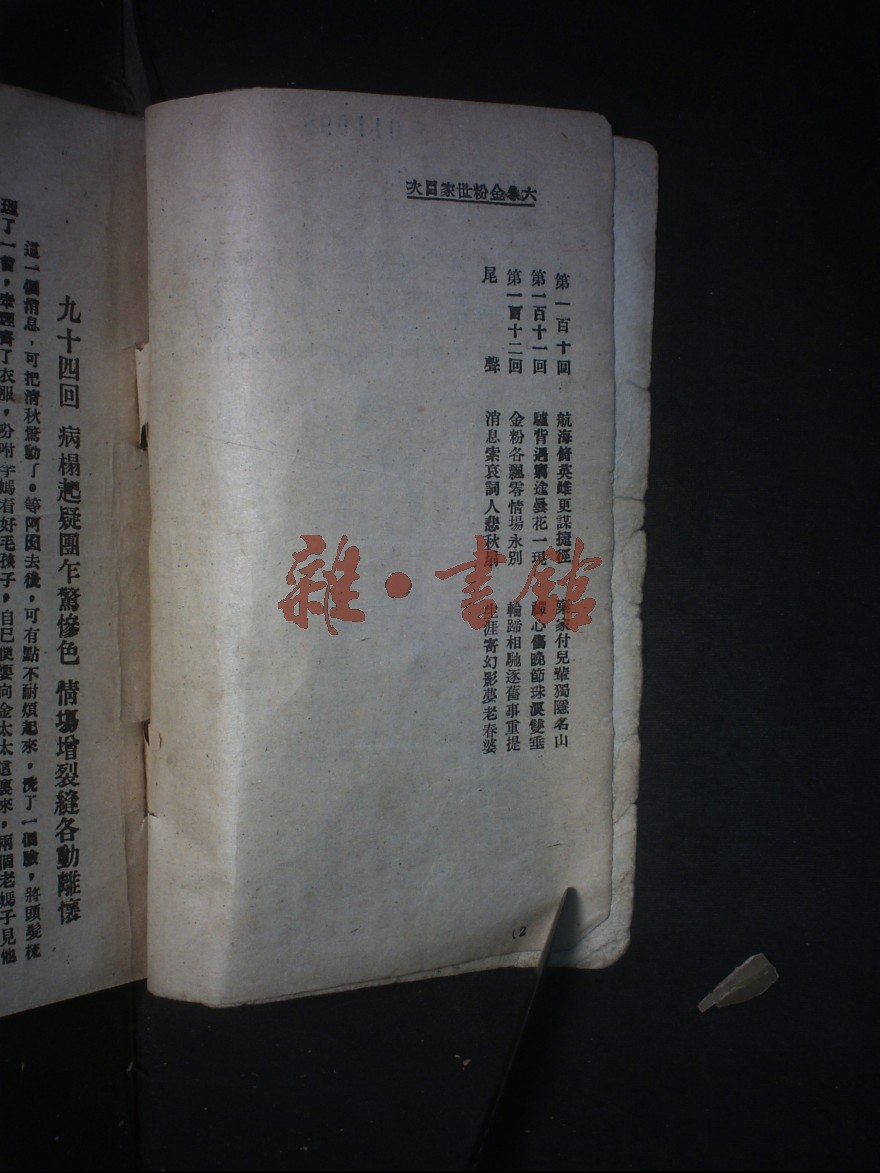 次目家世粉金集六
第一百十回 航海儕英雌更謀捷徑 棄家付兒輩獨隱名山
第一百十一回 驢背遇窮途曇花一現 心傷晚節珠淚雙垂
第一百十二回 金粉各飄零情場永別 輪蹄相馳逐舊事重提
尾聲 消息索哀詞人悲秋扇 生涯寄幻影夢老春婆
2
九十四回 病榻起疑團乍驚慘色 情場增裂縫各動離懷
這一個消息，可把清秋驚動了。等阿囡去後，可有點不耐煩起來，洗了一個臉，將頭髮梳
理了一會，來經齊了衣服，吩咐李媽看好毛孩子，自己便要向金太太這裏來，兩個老媽子見他
雜·書館